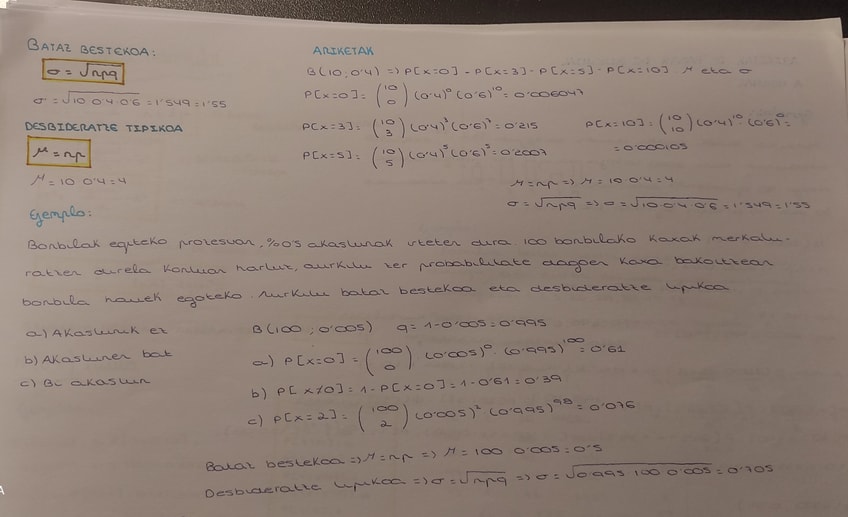 BATAZ BESTEKOA:
σ = √npq
σ = √10·0'4·0'6 = 1'549 = 1'55
DESBIDERATZE TIPIKOA
μ = np
μ = 10·0'4 = 4
ARIKETAK
B(10; 0'4) => P[x=0] - P[x=3] - P[x=5] - P[x=10] μ eta σ
P[x=0] = (10 0) (0'4)⁰ (0'6)¹⁰ = 0'006047
P[x=3] = (10 3) (0'4)³ (0'6)⁷ = 0'215
P[x=10] = (10 10) (0'4)¹⁰ (0'6)⁰ =
= 0'000105
P[x=5] = (10 5) (0'4)⁵ (0'6)⁵ = 0'2007
μ = np => μ = 10·0'4 = 4
σ = √npq => σ = √10·0'4·0'6 = 1'549 = 1'55
Ejemplo:
Bonbilak egiteko prozesuan, %0'5 akastunak irteten dira. 100 bonbilako kaxak merkatu-
ratzen direla kontuan hartuz, aurkitu zer probabilitate dagoen kaxa bakoitzean
bonbila hauek egoteko. Aurkitu bataz bestekoa eta desbideratze tipikoa
a) Akastunik ez
b) Akastunen bat
c) Bi akastun
B(100; 0'005) q = 1 - 0'005 = 0'995
a) P[x=0] = (100 0) (0'005)⁰ · (0'995)¹⁰⁰ = 0'61
b) P[x≠0] = 1 - P[x=0] = 1 - 0'61 = 0'39
c) P[x=2] = (100 2) (0'005)² (0'995)⁹⁸ = 0'076
Bataz bestekoa => μ = np => μ = 100·0'005 = 0'5
Desbideratze tipikoa => σ = √npq => σ = √0'995·100·0'005 = 0'705